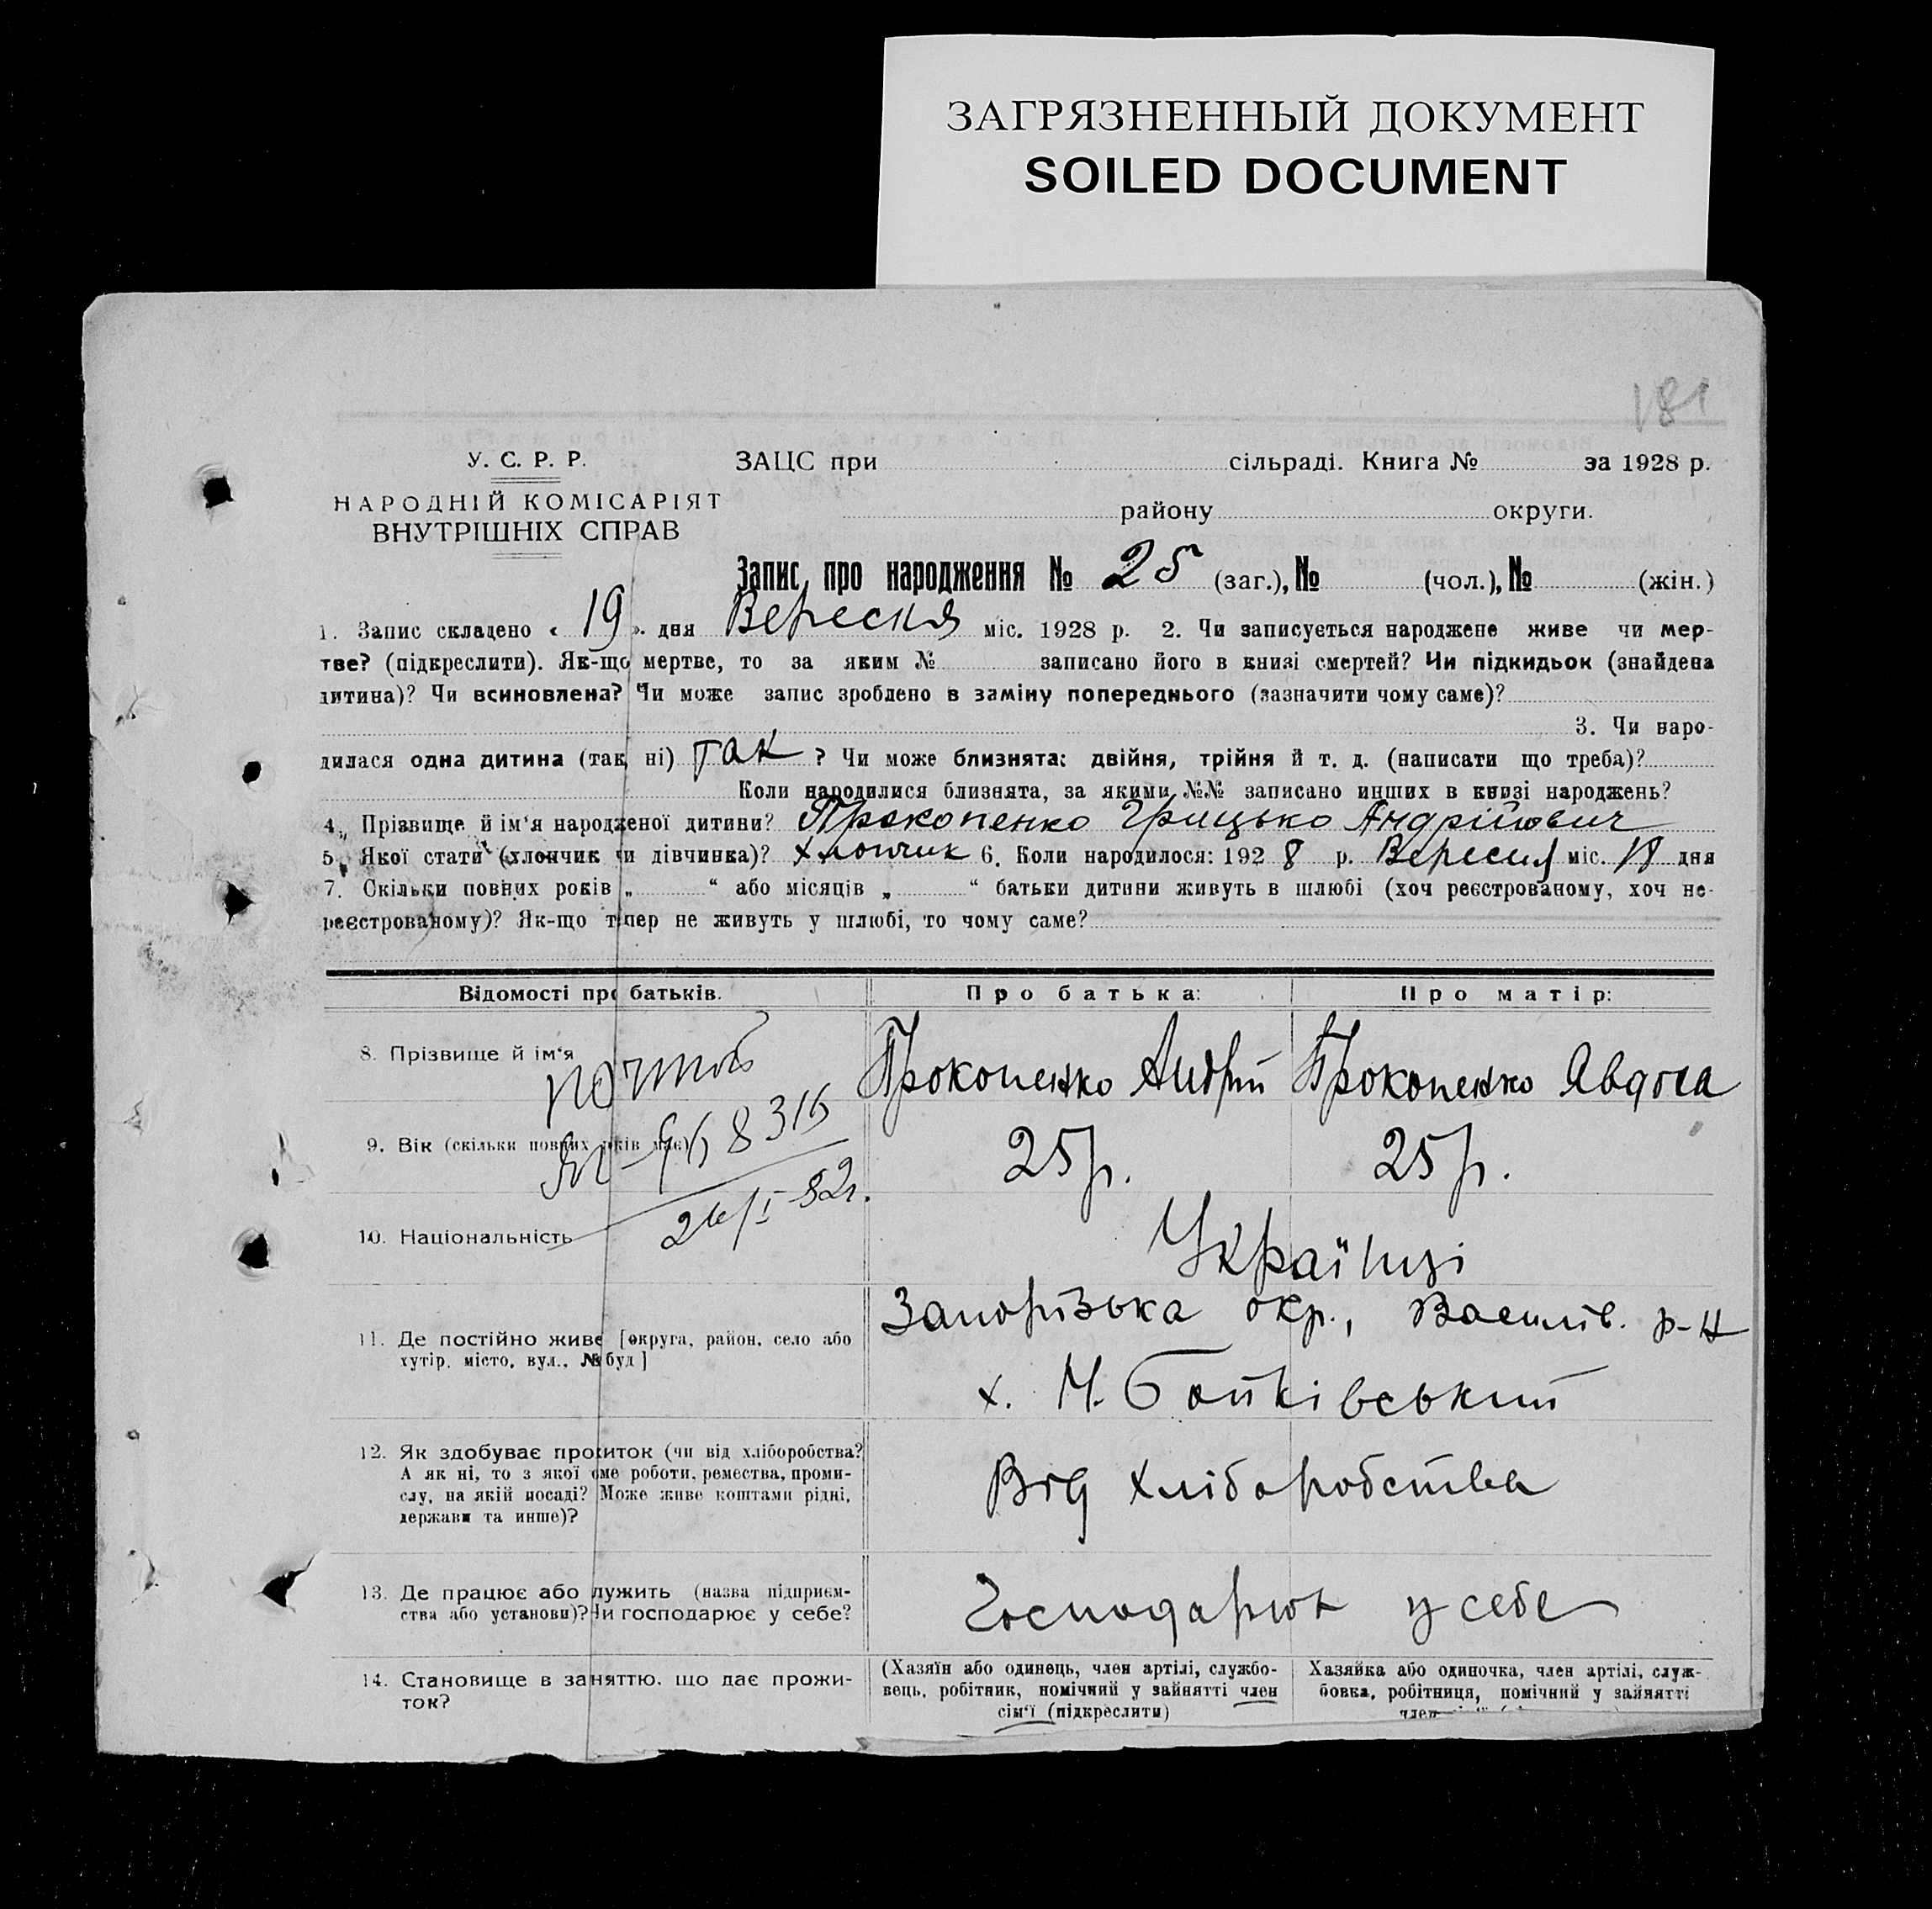 ЗАГРЯЗНЕННЫЙ ДОКУМЕНТ
SOILED DOCUMENT
181
У. С. Р. Р.
ЗАЦС при сільраді. Книга № за 1928 р.
НАРОДНІЙ КОМІСАРІЯТ
ВНУТРІШНІХ СПРАВ
району округи.
Запис про народження № 25 (заг.), № (чол.), № (жін.)
1. Запис складено « 19 ». дня Вересня міс. 1928 р. 2. Чи записується народжене живе чи мер-
тве? (підкреслити). Як-що мертве, то за яким № записано його в книзі смертей? Чи підкидьок (знайдена
дитина)? Чи всиновлена? Чи може запис зроблено в заміну попереднього (зазначити чому саме)?
3. Чи наро-
дилася одна дитина (так, ні) так ? Чи може близнята: двійня, трійня й т. д. (написати що треба)?
Коли народилися близнята, за якими №№ записано инших в книзі народжень?
4. Прізвище й ім'я народженої дитини? Прокопенко Грицько Андрійович
5. Якої статі (хлопчик чи дівчинка)? хлопчик 6. Коли народилося: 192 8 р. Вересня міс. 18 дня
7. Скільки повних років „ “ або місяців „ “ батьки дитини живуть в шлюбі (хоч реєстрованому, хоч не-
реєстрованому)? Як-що тепер не живуть у шлюбі, то чому саме?
Відомості про батьків.
Про батька:
Про матір:
8. Прізвище й ім'я
Прокопенко Андрій
Прокопенко Явдоха
9. Вік (скільки повних років має)
68316
25 р.
25 р.
10. Національність
Українці
11. Де постійно живе [округа, район, село або
хутір, місто, вул., № буд]
Запорізька окр., Василів. р-н
х. М. Бойківський
12. Як здобуває прожиток (чи від хліборобства?
А як ні, то з якої саме роботи, ремества, проми-
слу, на якій посаді? Може живе коштами рідні,
держави та инше)?
Від хліборобства
13. Де працює або служить (назва підприєм-
ства або установи)? Чи господарює у себе?
Господарюю у себе
14. Становище в заняттю, що дає прожи-
ток?
(Хазяїн або одинець, член артілі, службо-
вець, робітник, помічний у зайнятті член
сім'ї (підкреслити)
Хазяйка або одиночка, член артілі, служ-
бовка, робітниця, помічний у зайнятті
член